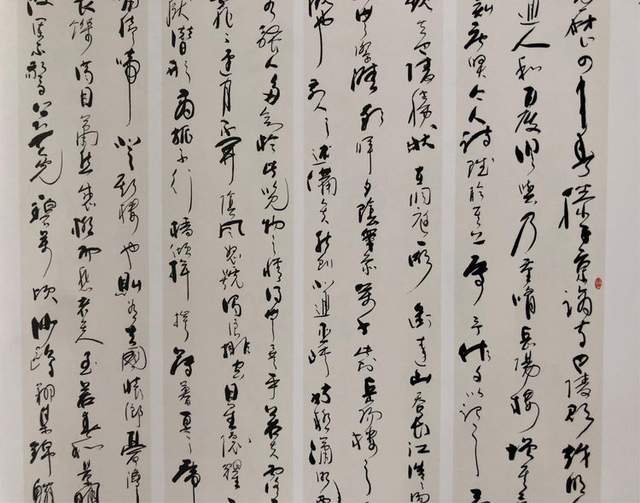 四年春滕子京謫守巴陵郡越明
通人和百廢具興乃重修岳陽樓增其
刻唐賢今人詩賦於其上屬予作文以記之
夫巴陵勝狀在洞庭一湖銜遠山吞長江浩浩
際涯朝暉夕陰氣象萬千此則岳陽樓之
觀也前人之述備矣然則北通巫峽南極瀟湘
客騷人多會於此覽物之情得無異乎若夫霪
霏霏連月不開陰風怒號濁浪排空日星隱耀
岳潛形商旅不行檣傾楫摧薄暮冥冥虎
猿啼登斯樓也則有去國懷鄉憂讒
滿目蕭然感極而悲者矣至若春和景明
波瀾不驚上下天光一碧萬頃沙鷗翔集錦鱗